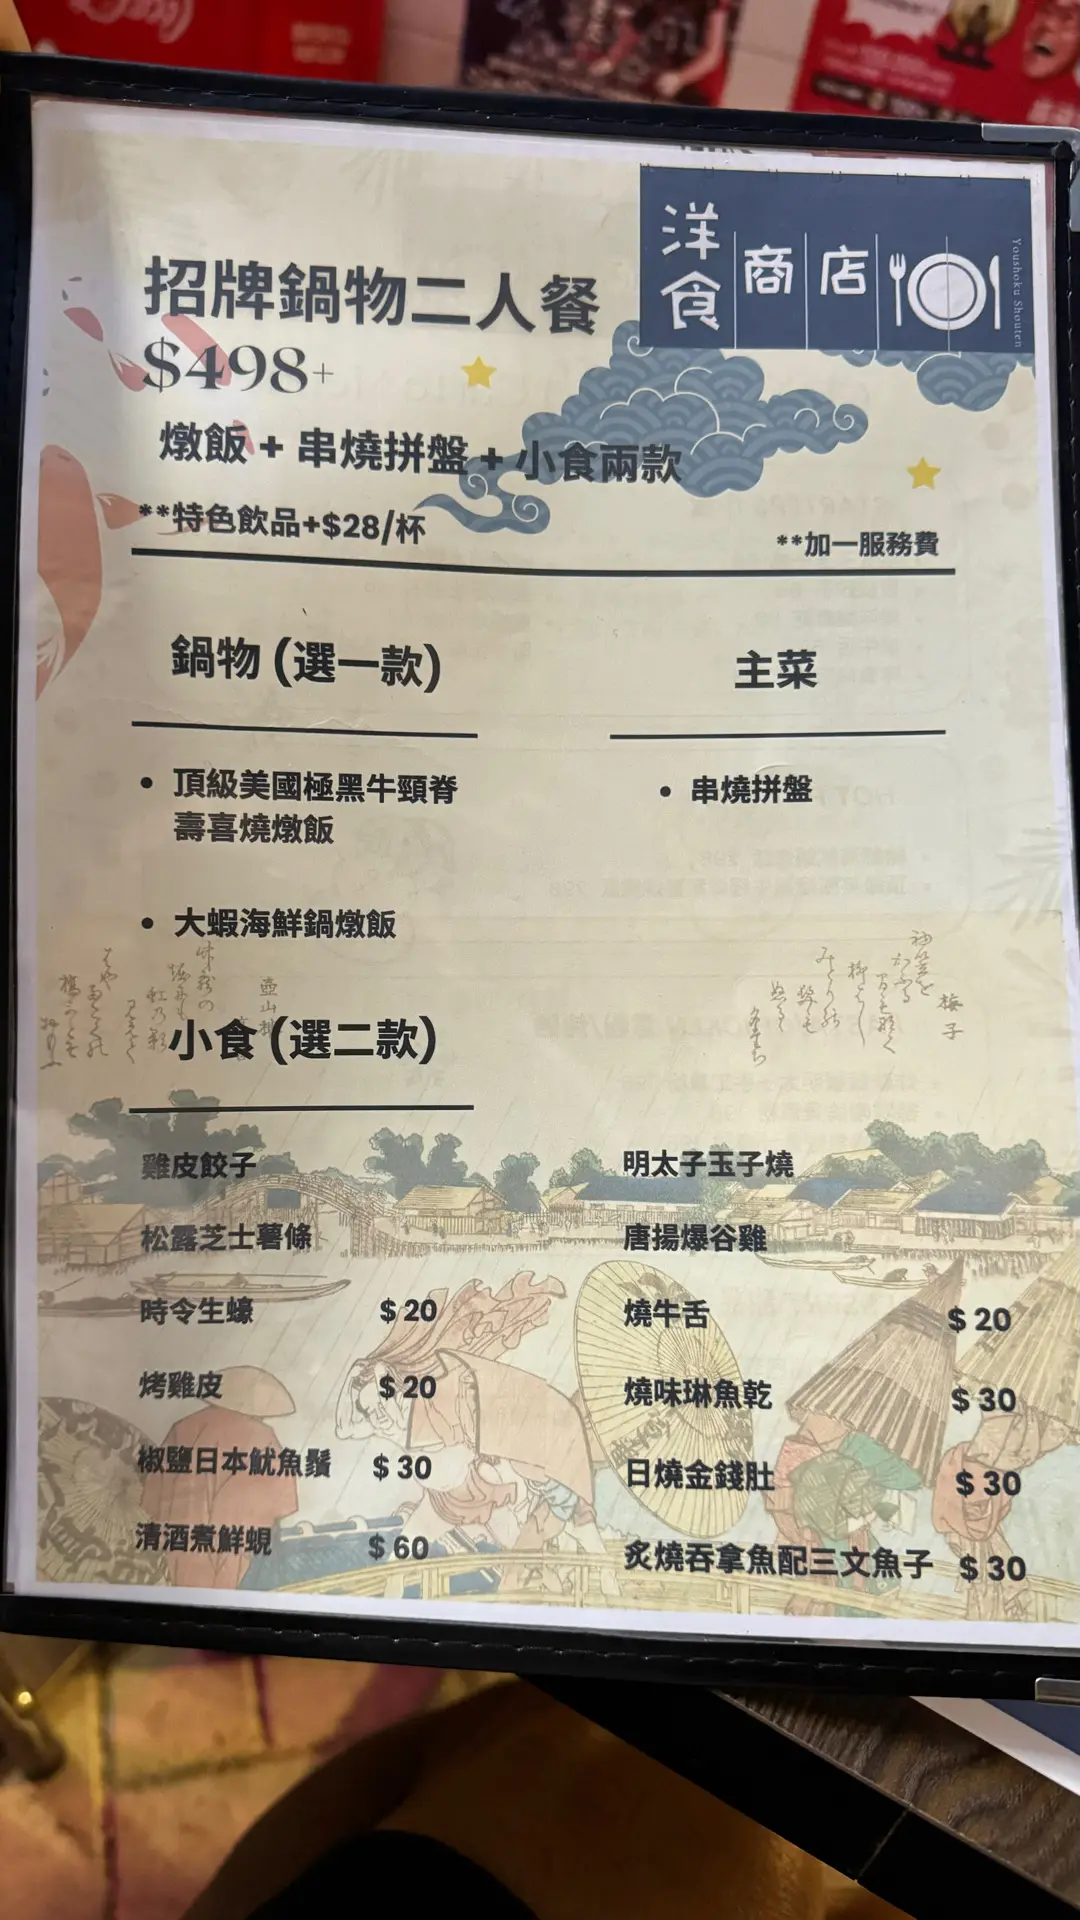 洋食商店
Youshoku Shouten
招牌鍋物二人餐
$498+
燉飯 + 串燒拼盤 + 小食兩款
**特色飲品+$28/杯
**加一服務費
鍋物 (選一款)
• 頂級美國極黑牛頸脊
壽喜燒燉飯
• 大蝦海鮮鍋燉飯
主菜
• 串燒拼盤
小食 (選二款)
雞皮餃子
松露芝士薯條
時令生蠔 $ 20
烤雞皮 $ 20
椒鹽日本魷魚鬚 $ 30
清酒煮鮮蜆 $ 60
明太子玉子燒
唐揚爆谷雞
燒牛舌 $ 20
燒味琳魚乾 $ 30
日燒金錢肚 $ 30
炙燒吞拿魚配三文魚子 $ 30
梅子